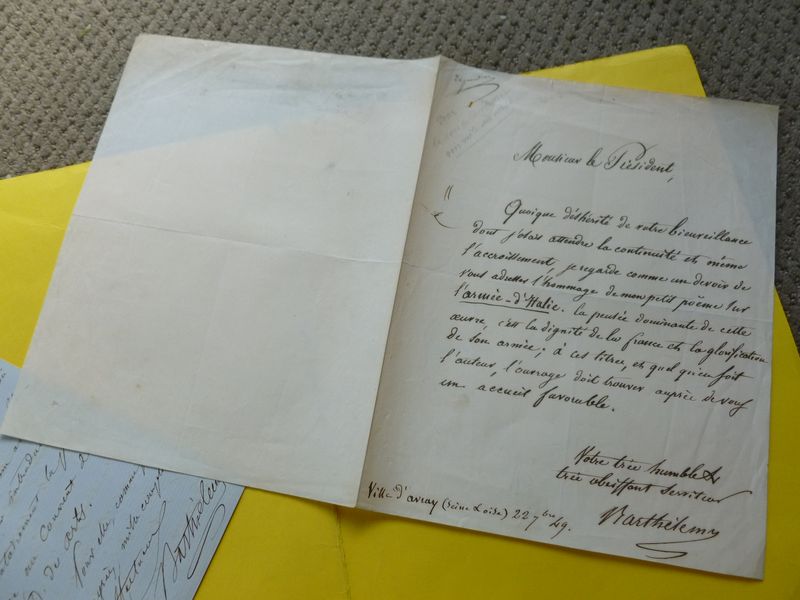 Monsieur le Président,
Quoique déshérité de votre bienveillance
dont j'osais attendre la continuité et même
l'accroissement, je regarde comme un devoir de
vous adresser l'hommage de mon petit poëme sur
l'armée-d'Italie. la pensée dominante de cette
œuvre, c'est la dignité de la france et la glorification
de son armée; à ces titres, et quel qu'en soit
l'auteur, l'ouvrage doit trouver auprès de vous
un accueil favorable.
Votre très humble et
très obéissant serviteur
Barthélemy
Ville d'avray (Seine & oise) 22 7bre 49.
au couvent
D. du arts.
Barthélemy